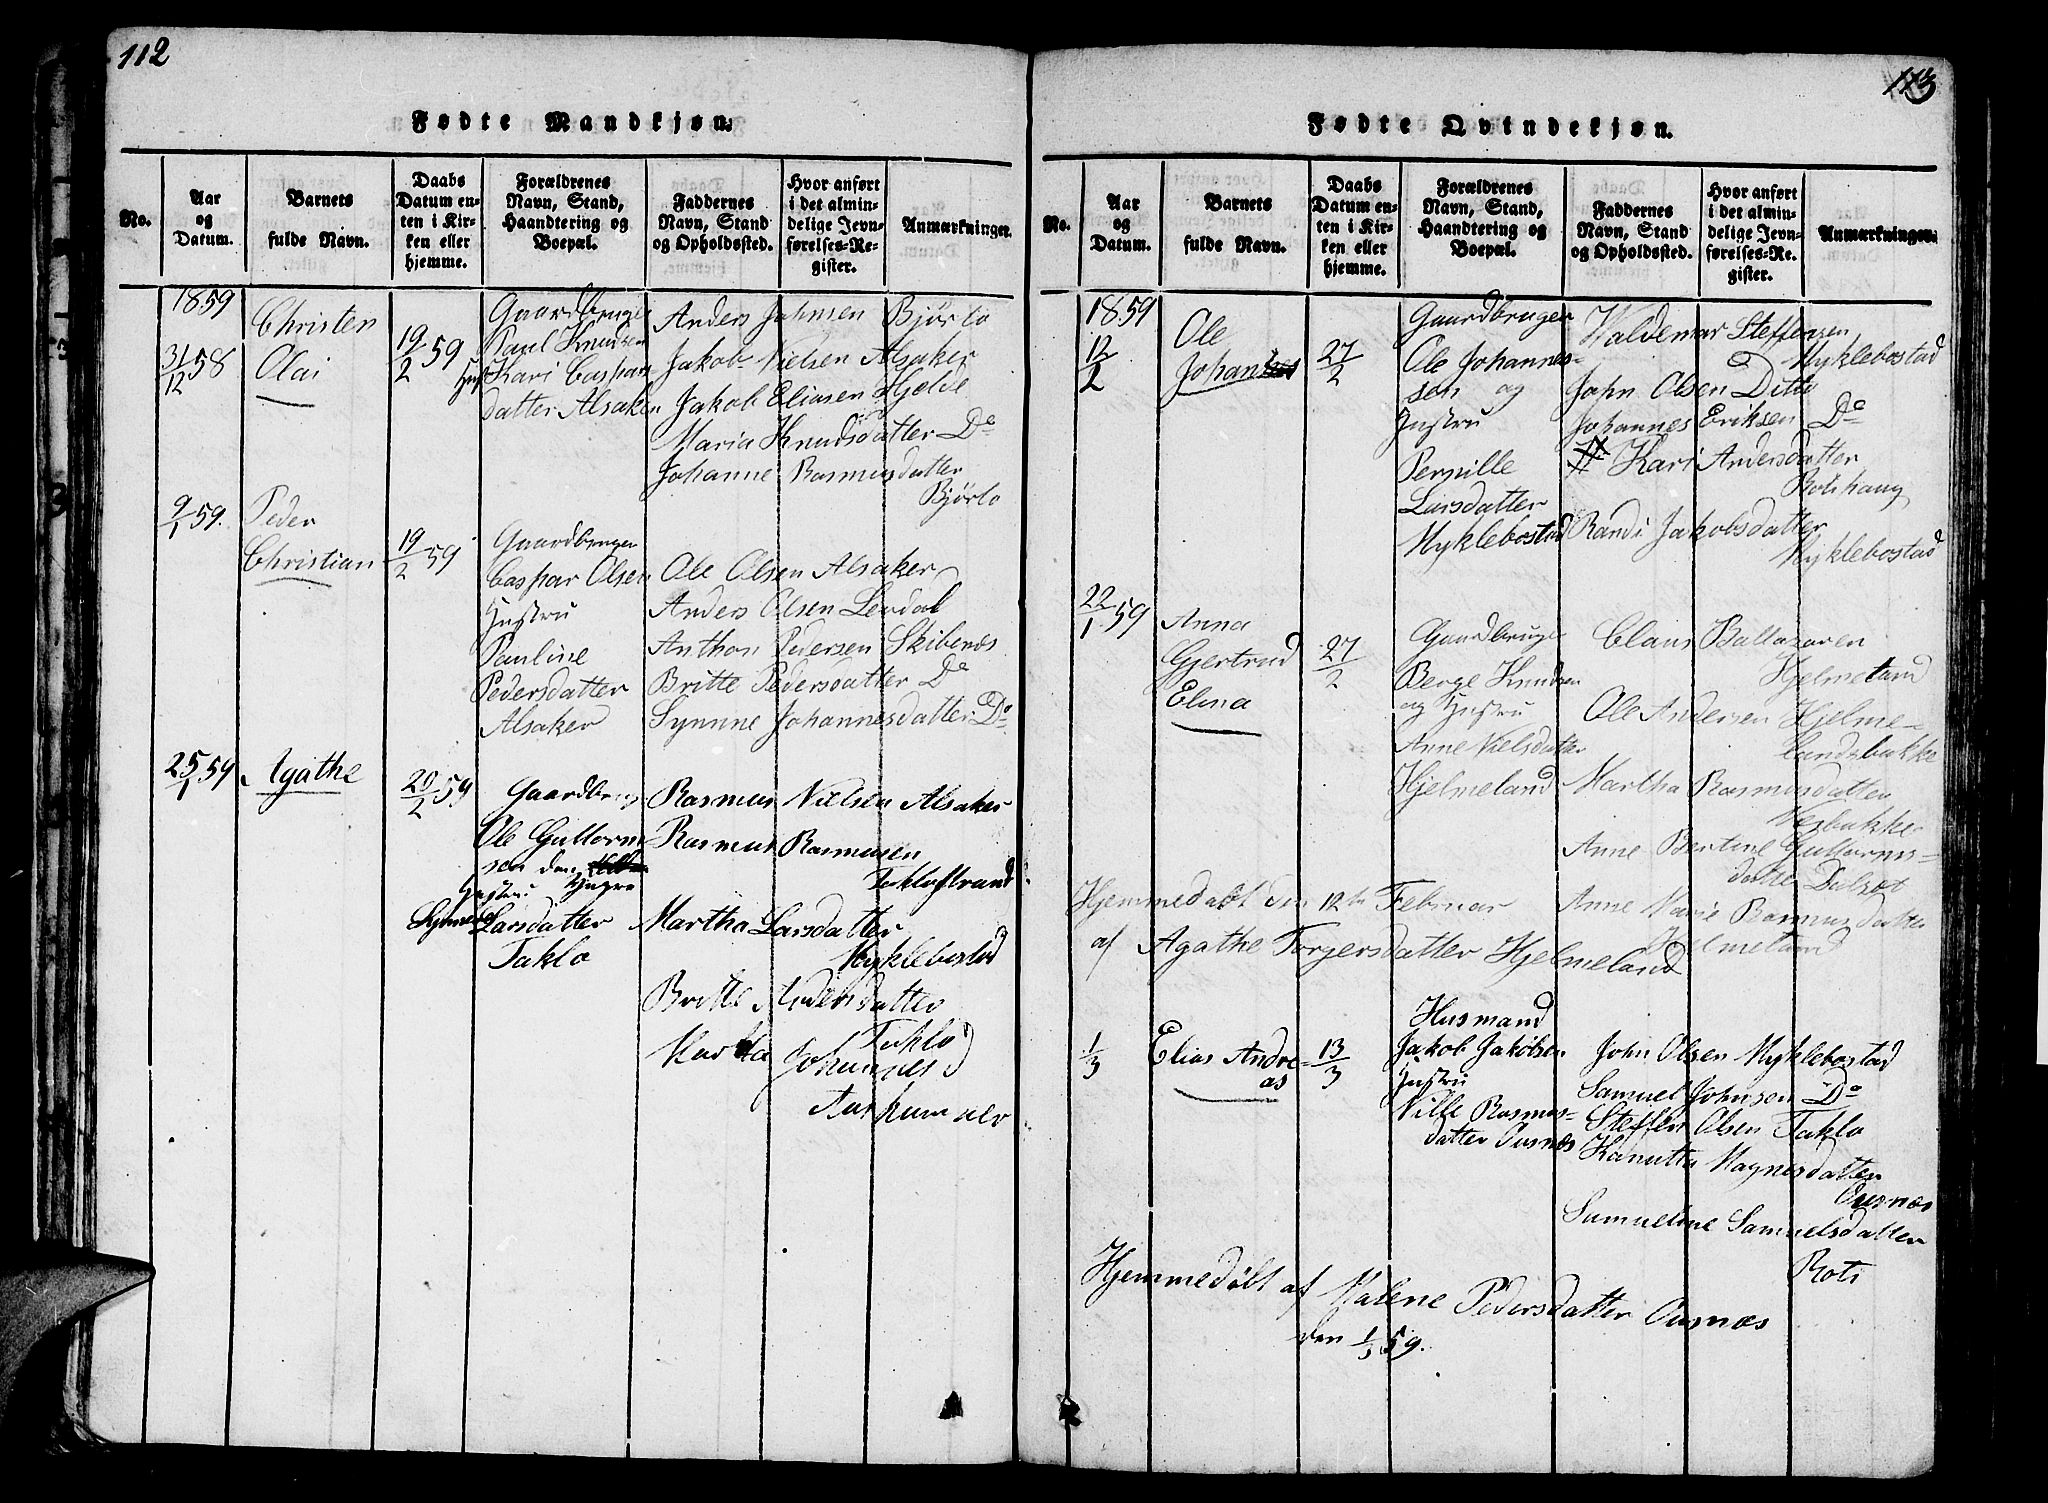 112
Fødte Mandkjøn.
No.
Aar og Datum.
Barnets fulde Navn.
Daabs Datum enten i Kirken eller hjemme.
Forældrenes Navn, Stand, Haandtering og Boepæl.
Faddernes Navn, Stand og Opholdssted.
Hvor anført i det almindelige Jevnførelses-Register.
Anmærkninger.
1859
31/12 58
Christen
Olai
19/2 59
Gaardbruger
Paul Knudsen
Hust
Kari Caspars
datter Alsaker
Anders Johnsen Bjørlo
Jakob Nielsen Alsaker
Jakob Eliasen Hjelde
Maria Knudsdatter Do
Johanne Rasmusdatter
Bjørlo
9/1 59.
Peder
Christian
19/2 59
Gaardbruger
Caspar Olsen
Hustru
Pauline
Pedersdatter
Alsaker
Ole Olsen Alsaker
Anders Olsen Lendal
Anthon Pedersen Skibenæs
Britte Pedersdatter Do
Synnne Johannesdatter Do
25/1 59
Agathe
20/2 59
Gaardbrug
Ole Guttorm
sen den
Hustru Yngre
Larsdatter
Taklo
Rasmus Nielsen Alsaker
Rasmus Rasmusen
Taklostrand
Martha Larsdatter
Myklebostad
Britte Andersdatter
Taklo
Marta Johannesd
113
Fødte Qvindekjøn.
No.
Aar og Datum.
Barnets fulde Navn.
Daabs Datum enten i Kirken eller hjemme.
Forældrenes Navn, Stand, Haandtering og Boepæl.
Faddernes Navn, Stand og Opholdssted.
Hvor anført i det almindelige Jevnførelses-Register.
Anmærkninger.
1859
12/2
Ole
Johan
27/2
Gaardbruger
Ole Johannes-
sen og
Hustru
Pernille
Larsdatter
Myklebostad
Valdemar Steffensen
Myklebostad
John Olsen Ditto
Johannes Eriksen Do
Kari Andersdatter
Rotihaug
Randi Jakobsdatter
Myklebostad
22/1 59
Anna
Gjertrud
Elina
27/2
Gaardbruger
Berge Knudsen
og Hustru
Anne Nielsdatter
Hjelmeland
Claus Baltazarsen
Hjelmeland
Ole Andersen Hjelme-
landsbakke
Martha Rasmusdatter
Nesbakke
Anne Bentine Guttorms-
datter
Anne Marie Rasmusdatter
Hjelmeland
Hjemmedøbt den 12te Februar
af Agathe Torgersdatter Hjelmeland
1/3
Elias Andre-
as
13/3
Husmand
Jakob Jakobsen
Hustru
Nille Rasmus-
datter Ousnæs
John Olsen Myklebostad
Samuel Johnsen Do
Steffen Olsen Taklo
Kanutta Magnesdatter
Ousnæs
Samueline Samuelsdatter
Roti
Hjemmedøbt af Malene Pedersdatter Ousnæs
den 1/3 59.